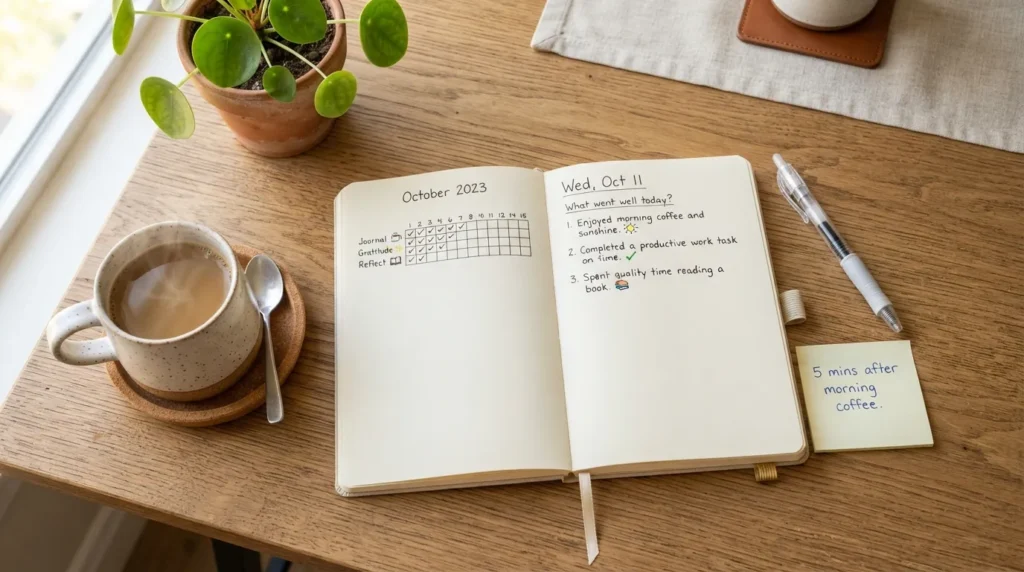 October 2023
1 2 3 4 6 7 8 10 11 12 14 15
Journal
Gratitude
Reflect
Wed, Oct 11
What went well today?
1. Enjoyed morning coffee and
sunshine.
2. Completed a productive work task
on time.
3. Spent quality time reading a
book.
5 mins after
morning
coffee.